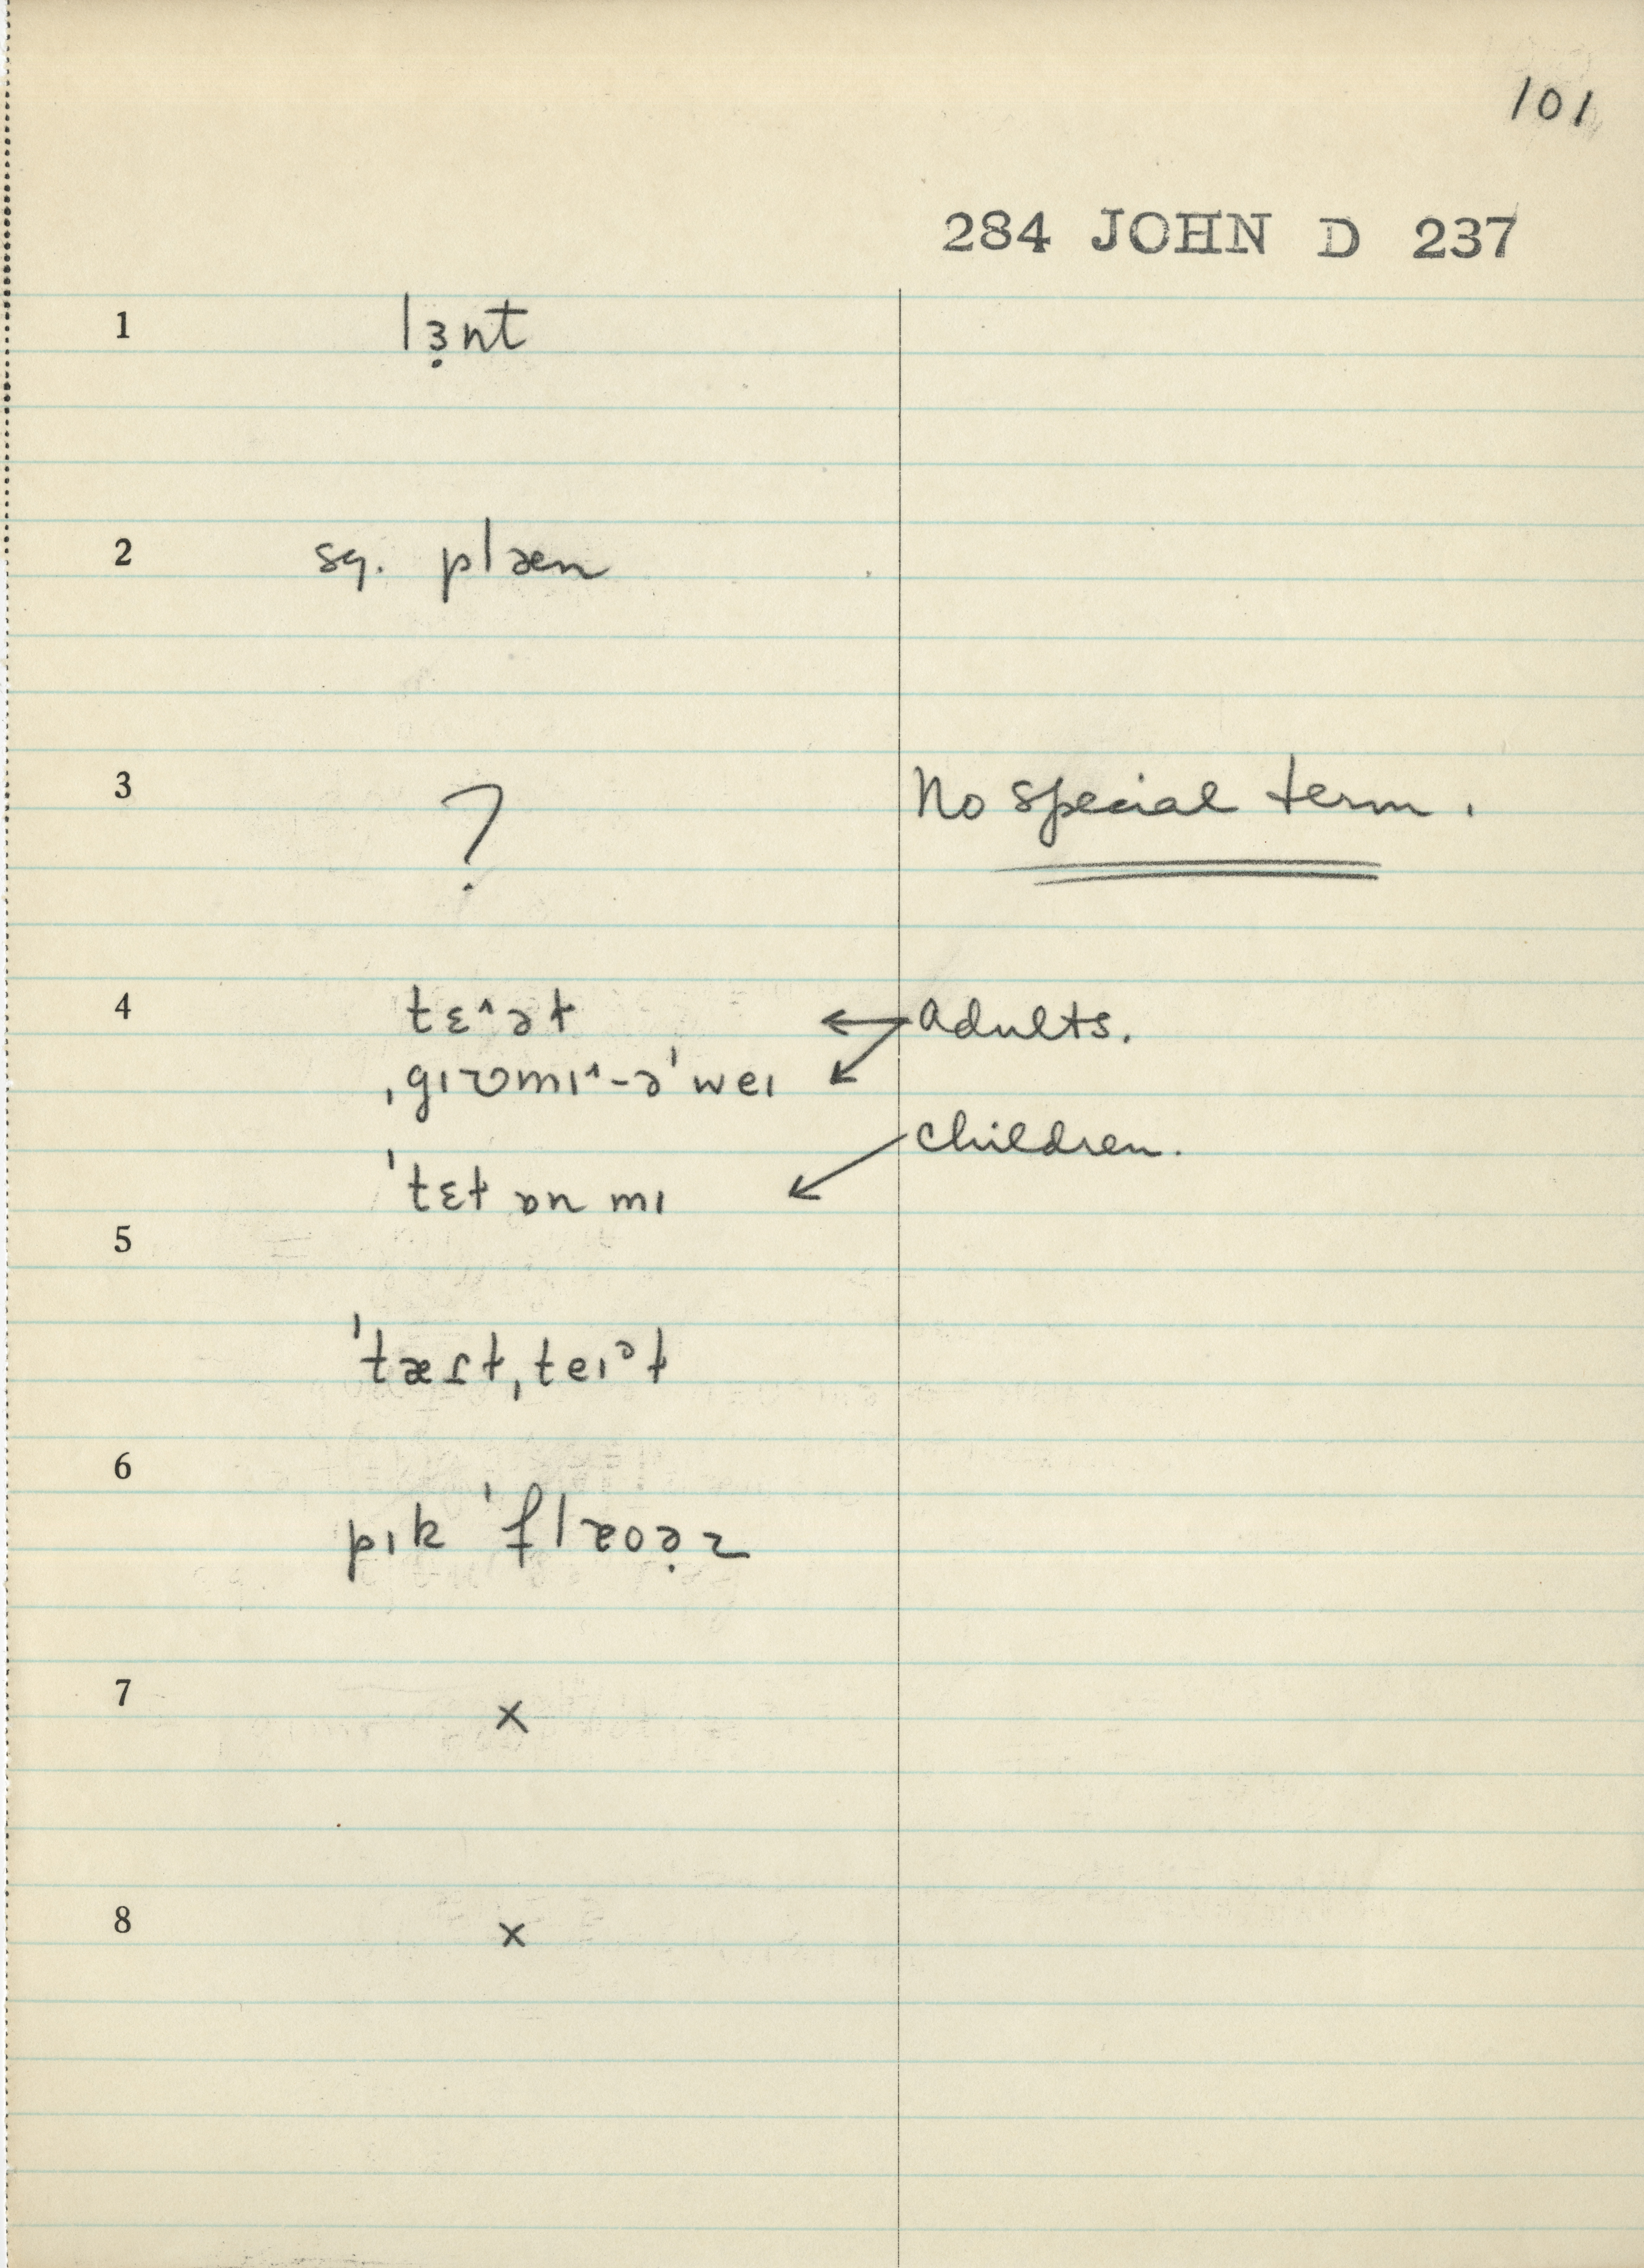 101
284 JOHN D 237
1 lɜ̣nt
2 sq. plæn
3 ? No special term.
4 tɛ^ət ← Adults.
ˌgɪʊmɪ^-əˈweɪ
children.
ˈtɛt ɒn mɪ
5
ˈtæɾt,teɪᵊt
6
pɪk ˈflɐoə̣z
7 ×
8 ×